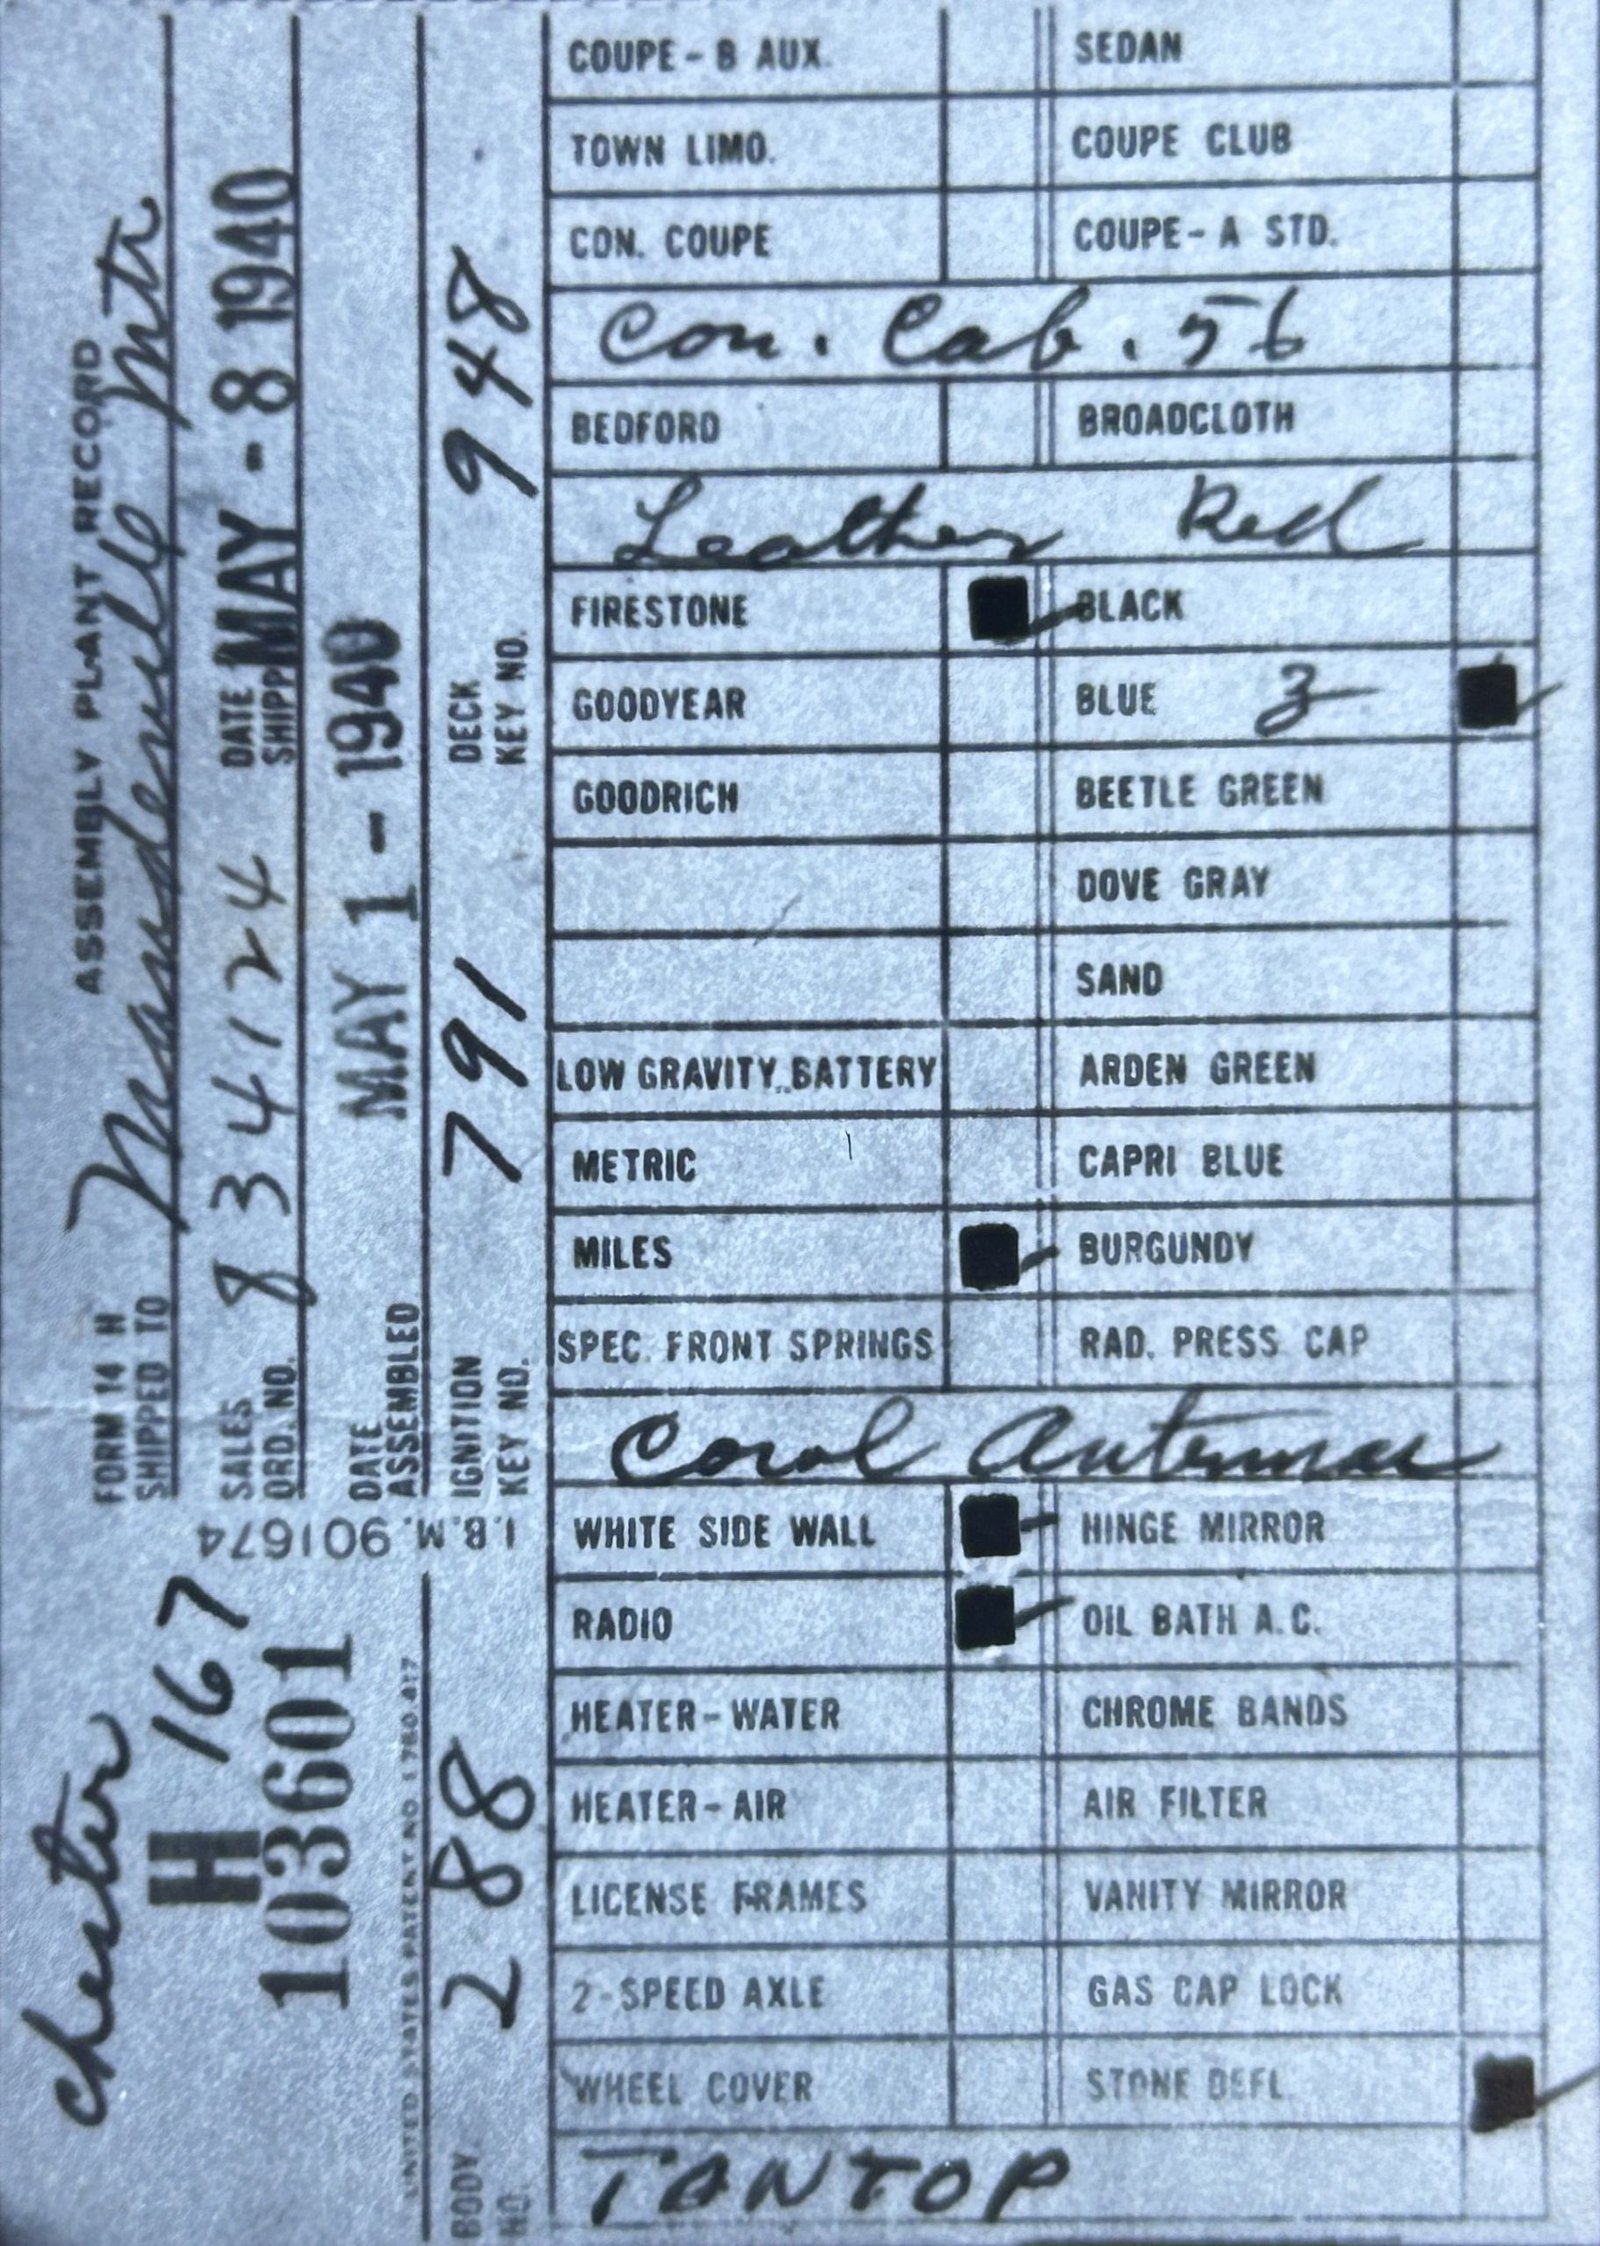 chester
H 167
103601
I.B.M. 901674
UNITED STATES PATENT NO 1 780 417
FORM 14 H ASSEMBLY PLANT RECORD
SHIPPED TO Mandeville Mtr
SALES ORD. NO. 834124 DATE SHIPP MAY - 8 1940
DATE ASSEMBLED MAY 1 - 1940
BODY NO. 288 IGNITION KEY NO. 791 DECK KEY NO. 948
COUPE - B AUX. SEDAN
TOWN LIMO. COUPE CLUB
CON. COUPE COUPE - A STD.
Con. Cab. 56
BEDFORD BROADCLOTH
Leather Red
FIRESTONE BLACK
GOODYEAR BLUE 3
GOODRICH BEETLE GREEN
DOVE GRAY
SAND
LOW GRAVITY BATTERY ARDEN GREEN
METRIC CAPRI BLUE
MILES BURGUNDY
SPEC. FRONT SPRINGS RAD. PRESS CAP
Cowl Antennae
WHITE SIDE WALL HINGE MIRROR
RADIO OIL BATH A.C.
HEATER - WATER CHROME BANDS
HEATER - AIR AIR FILTER
LICENSE FRAMES VANITY MIRROR
2 - SPEED AXLE GAS CAP LOCK
WHEEL COVER STONE DEFL.
TANTOP